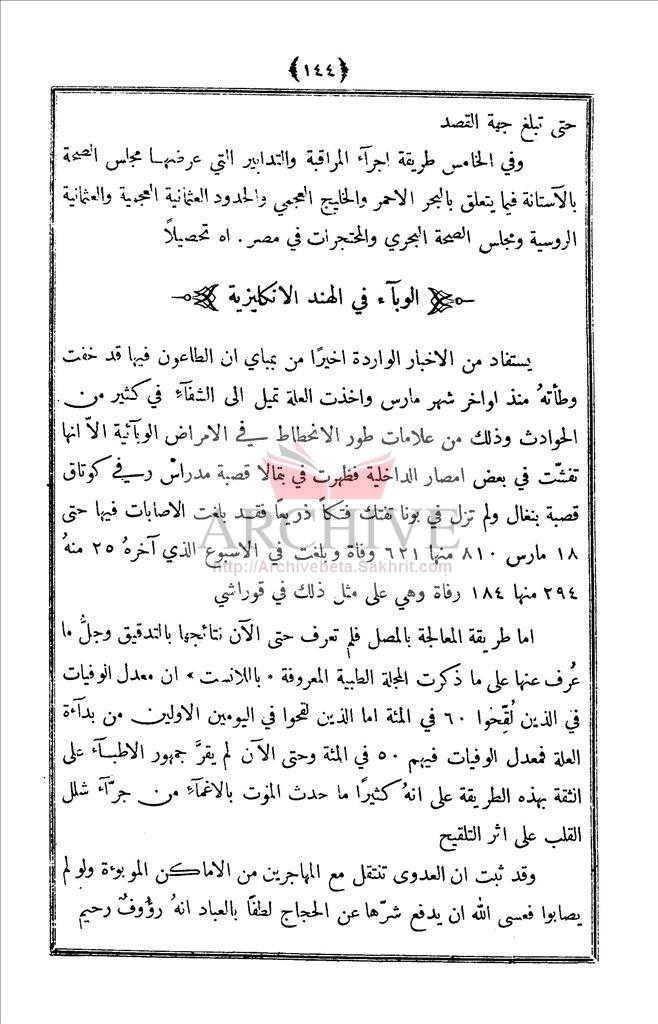 ﴿١٤٤﴾
حتى تبلغ جهة القصد
وفي الخامس طريقة اجرآء المراقبة والتدابير التي عرضها مجلس الصحة
بالآستانة فيما يتعلق بالبحر الاحمر والخليج العجمي والحدود العثمانية العجمية والعثمانية
الروسية ومجلس الصحة البحري والمحتجرات في مصر . اه تحصيلاً
الوبآء في الهند الانكليزية
يستفاد من الاخبار الواردة اخيرًا من بمباي ان الطاعون فيها قد خفت
وطأتهُ منذ اواخر شهر مارس واخذت العلة تميل الى الشفآءِ في كثير من
الحوادث وذلك من علامات طور الانحطاط في الامراض الوبآئية الاّ انها
تفشّت في بعض امصار الداخلية فظهرت في بتمالا قصبة مدراس وفي كوتاق
قصبة بنغال ولم تزل في بونا تفتك فتكاً ذريعاً فقد بلغت الاصابات فيها حتى
١٨ مارس ٨١٠ منها ٦٢١ وفاة وبلغت في الاسبوع الذي آخرهُ ٢٥ منهُ
٢٩٤ منها ١٨٤ رفاة وهي على مثل ذلك في قوراشي
ARCHIVE
http://Archivebeta.Sakhrit.com
اما طريقة المعالجة بالمصل فلم تعرف حتى الآن نتائجها بالتدقيق وجلُّ ما
عُرف عنها على ما ذكرت المجلة الطبية المعروفة « باللانست » ان معدل الوفيات
في الذين لُقِّحوا ٦٠ في المئة اما الذين لقحوا في اليومين الاولين من بدآءة
العلة فمعدل الوفيات فيهم ٥٠ في المئة وحتى الآن لم يقرَّ جمهور الاطبآء على
الثقة بهذه الطريقة على انهُ كثيرًا ما حدث الموت بالاغمآءِ من جرّآء شلل
القلب على اثر التلقيح
وقد ثبت ان العدوى تنتقل مع المهاجرين من الاماكن الموبوءة ولو لم
يصابوا فعسى الله ان يدفع شرّها عن الحجاج لطفًا بالعباد انهُ رؤوفٌ رحيم